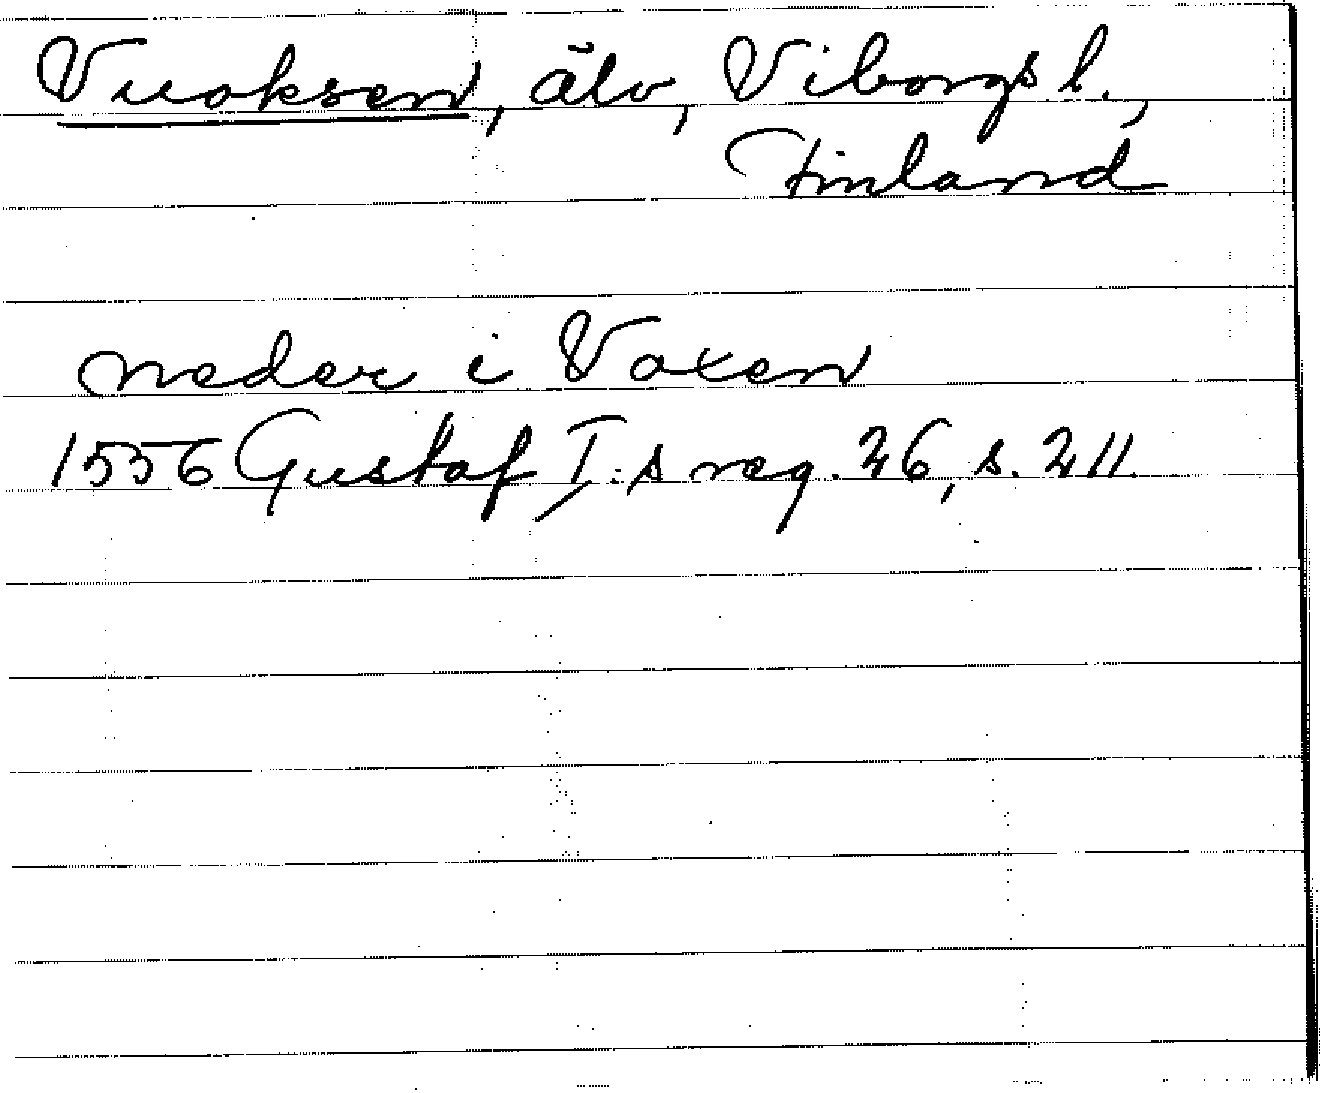 Vuoksen, älv, Viborgs l.,
Finland
neder i Voxen
1556 Gustaf I:s reg. 26, s. 211.